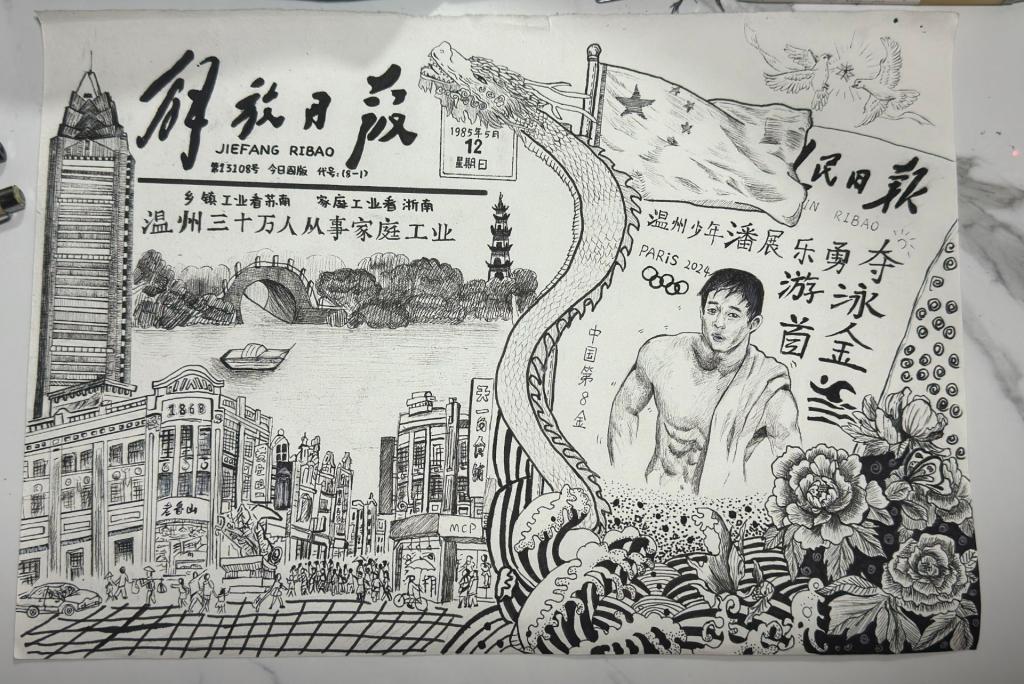 解放日报
JIEFANG RIBAO
第13108号 今日四版 代号:(3-1)
1985年5月
12
星期日
乡镇工业看苏南 家庭工业看浙南
温州三十万人从事家庭工业
民日报
IN RIBAO
温州少年潘展乐勇夺
游泳首金
PARIS 2024
中国第8金
1868
老香山
天一角食铺
MCP